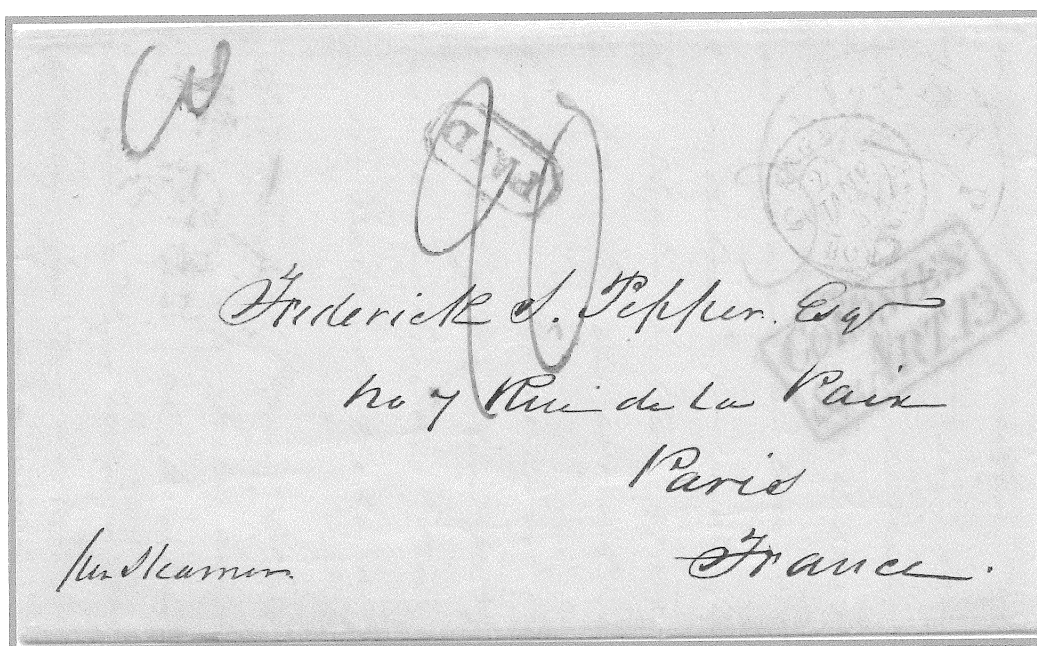 PAID
COLONIES
ART.13.
Frederick S. Pepper. Esqr
No 7 Rue de La Paix
Paris
France.
per Steamer.